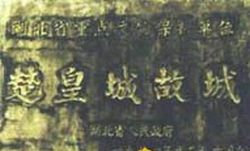 湖北省重点文物保护单位
楚皇城故城
湖北省人民政府